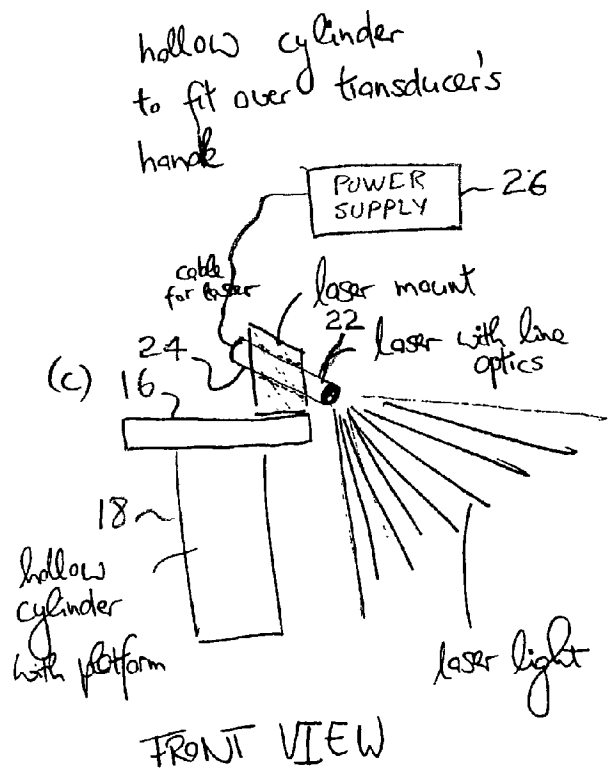 hollow cylinder
to fit over transducer's
handle
POWER
SUPPLY
26
cable
for laser
laser mount
22
laser with line
optics
24
(c)
16
18
hollow
cylinder
with platform
laser light
FRONT VIEW